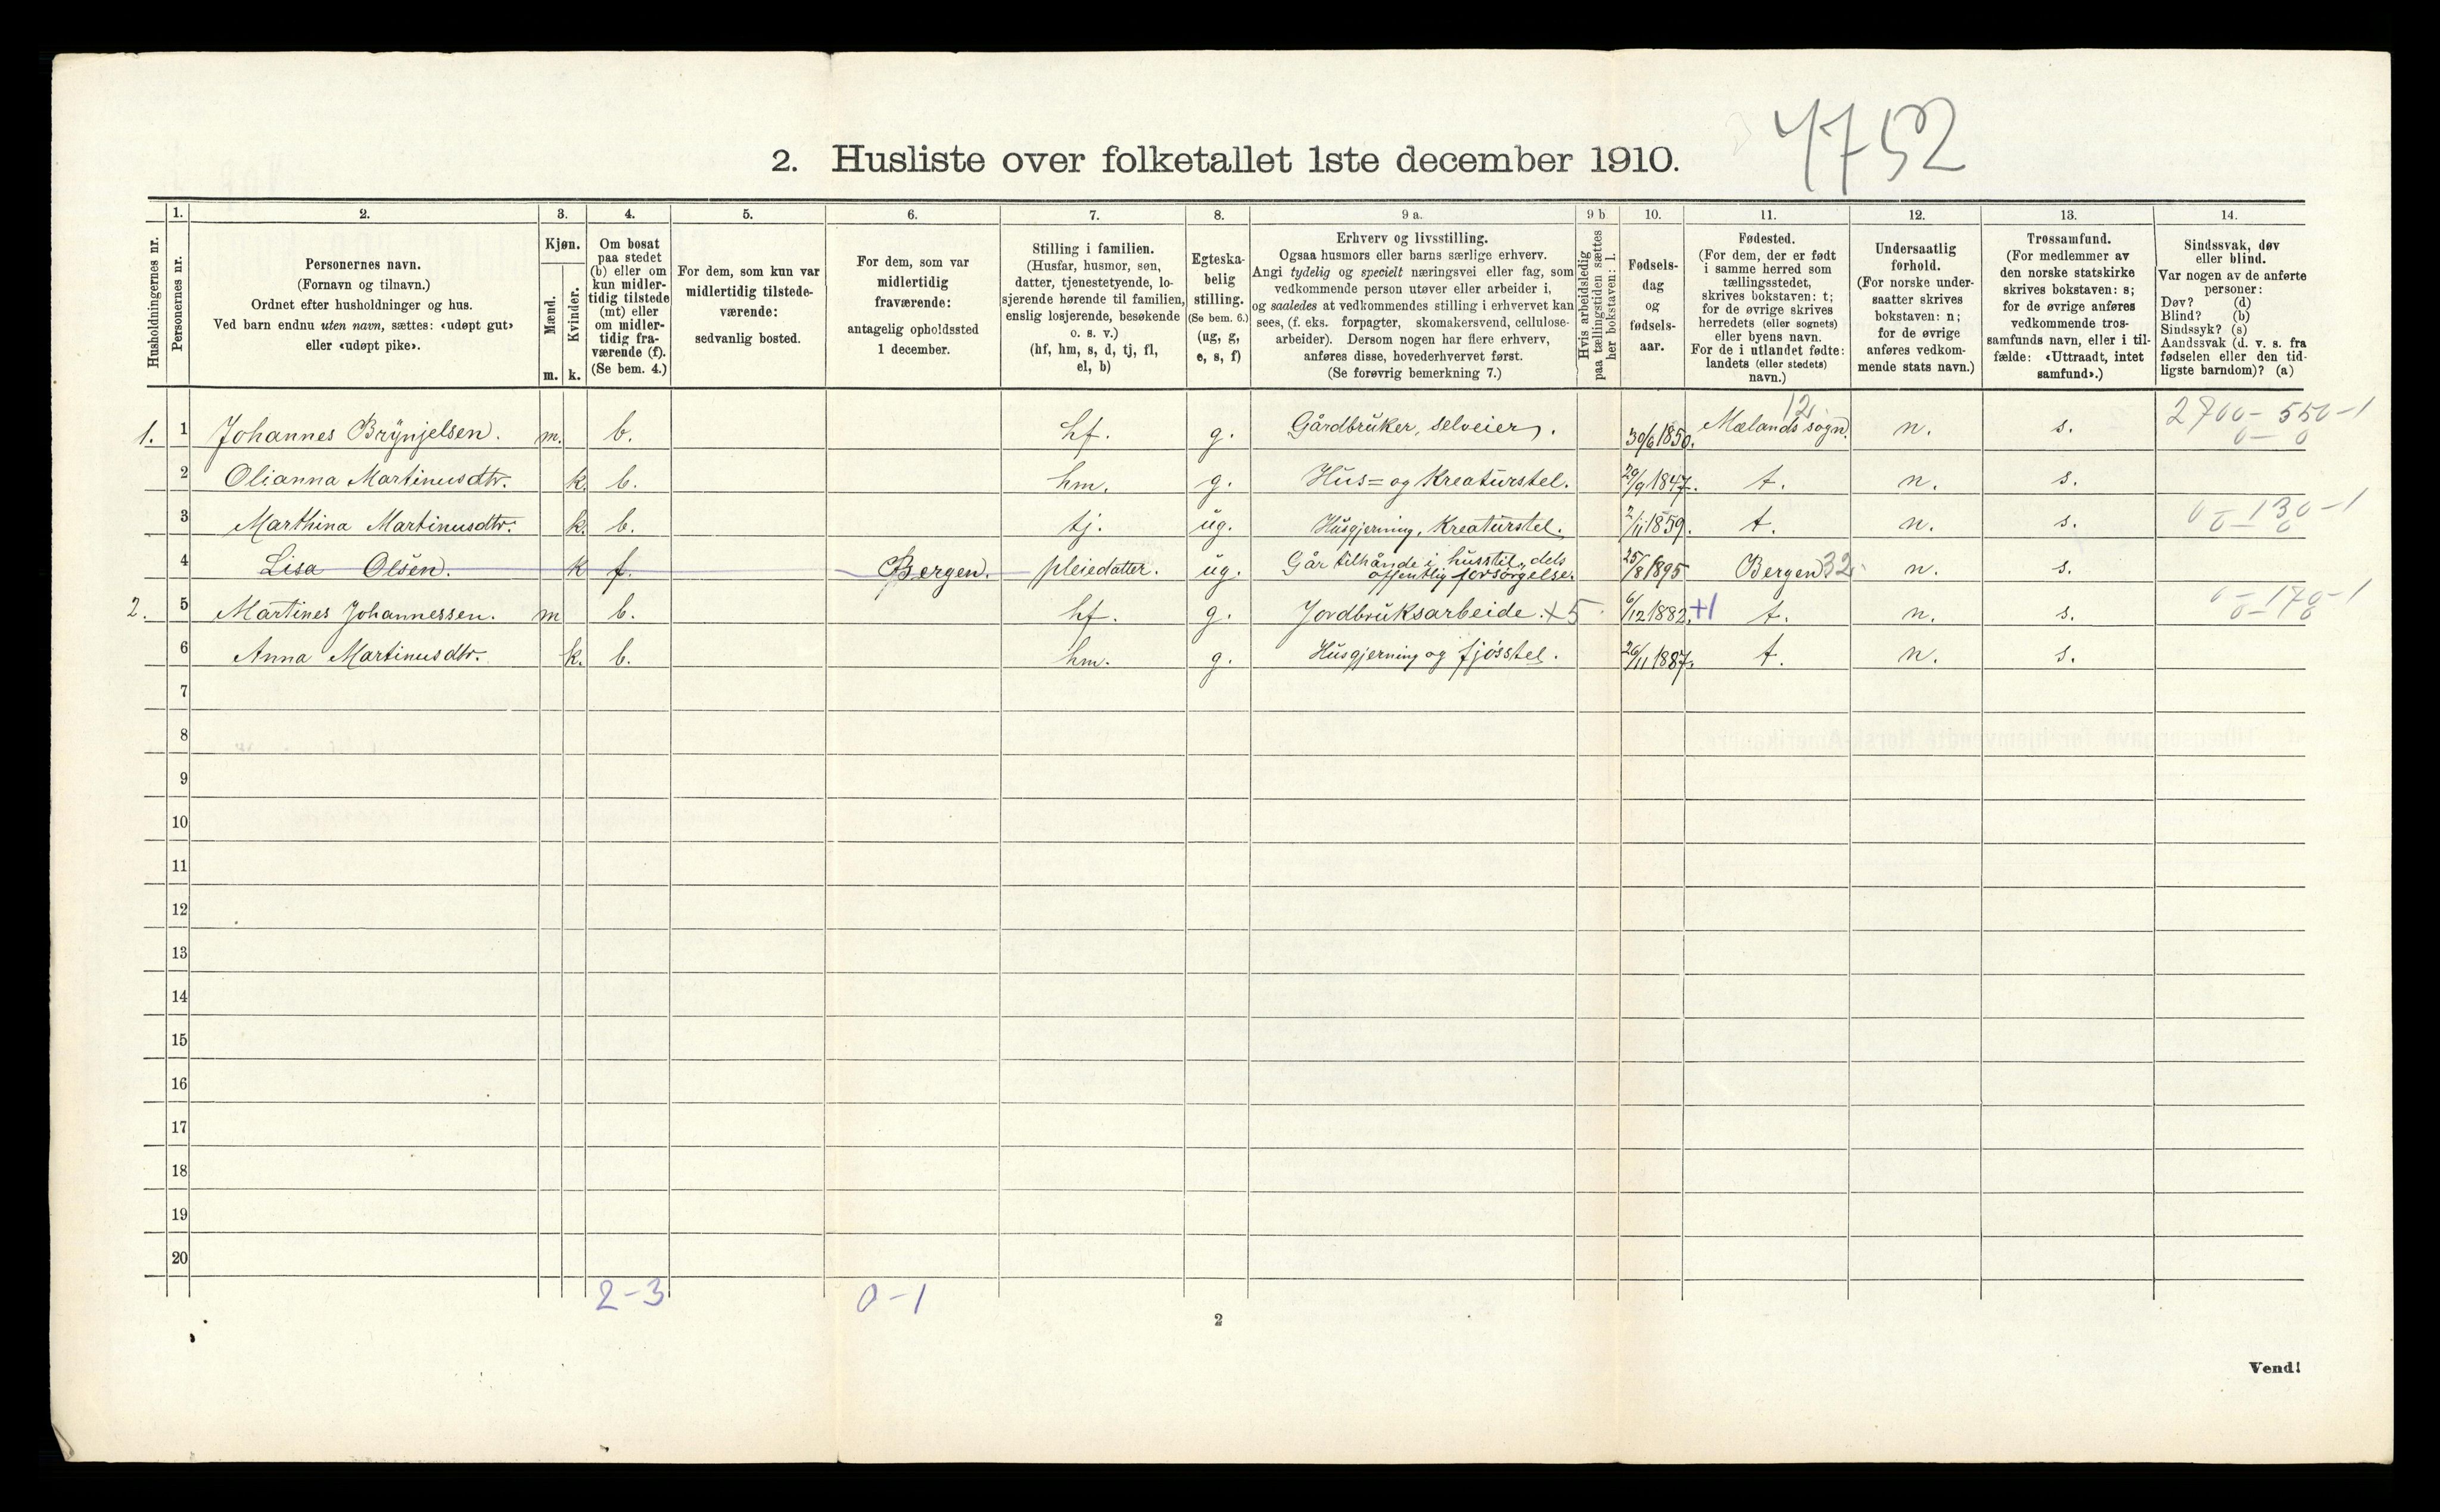 4752
2. Husliste over folketallet 1ste december 1910.
Husholdningernes nr.
1. Personernes nr.
2. Personernes navn.
(Fornavn og tilnavn.)
Ordnet efter husholdninger og hus.
Ved barn endnu uten navn, sættes: «udøpt gut»
eller «udøpt pike».
3. Kjøn.
Mænd. m.
Kvinder. k.
4. Om bosat
paa stedet
(b) eller om
kun midler-
tidig tilstede
(mt) eller
om midler-
tidig fra-
værende (f).
(Se bem. 4.)
5. For dem, som kun var
midlertidig tilstede-
værende:
sedvanlig bosted.
6. For dem, som var
midlertidig
fraværende:
antagelig opholdssted
1 december.
7. Stilling i familien.
(Husfar, husmor, søn,
datter, tjenestetyende, lo-
sjerende hørende til familien,
enslig losjerende, besøkende
o. s. v.)
(hf, hm, s, d, tj, fl,
el, b)
8. Egteska-
belig
stilling.
(Se bem. 6.)
(ug, g,
e, s, f)
9 a. Erhverv og livsstilling.
Ogsaa husmors eller barns særlige erhverv.
Angi tydelig og specielt næringsvei eller fag, som
vedkommende person utøver eller arbeider i,
og saaledes at vedkommendes stilling i erhvervet kan
sees, (f. eks. forpagter, skomakersvend, cellulose-
arbeider). Dersom nogen har flere erhverv,
anføres disse, hovederhvervet først.
(Se forøvrig bemerkning 7.)
9 b Hvis arbeidsledig
paa tællingstiden sættes
her bokstaven: l.
10. Fødsels-
dag
og
fødsels-
aar.
11. Fødested.
(For dem, der er født
i samme herred som
tællingsstedet,
skrives bokstaven: t;
for de øvrige skrives
herredets (eller sognets)
eller byens navn.
For de i utlandet fødte:
landets (eller stedets)
navn.)
12. Undersaatlig
forhold.
(For norske under-
saatter skrives
bokstaven: n;
for de øvrige
anføres vedkom-
mende stats navn.)
13. Trossamfund.
(For medlemmer av
den norske statskirke
skrives bokstaven: s;
for de øvrige anføres
vedkommende tros-
samfunds navn, eller i til-
fælde: «Uttraadt, intet
samfund».)
14. Sindssvak, døv
eller blind.
Var nogen av de anførte
personer:
Døv? (d)
Blind? (b)
Sindssyk? (s)
Aandssvak (d. v. s. fra
fødselen eller den tid-
ligste barndom)? (a)
1. 1 Johannes Brynjelsen. m. b. hf. g. Gårdbruker, selveier. 30/6 1850. Mælands sogn. 12 n. s. 2700 - 550 - 1
0 - 0
2 Olianna Martinusdtr. k. b. hm. g. Hus= og Kreaturstel. 29/9 1847. t. n. s.
3 Marthina Martinusdtr. k. b. tj. ug. Husgjerning, Kreaturstel. 2/11 1859. t. n. s. 0 - 130 - 1
0 - 0
4 Lisa Olsen. k f. Bergen. pleiedatter. ug. Går tilhånde i husstel, dels
offentlig forsørgelse. 25/8 1895 Bergen 32 n. s.
2. 5 Martines Johannessen. m b. hf. g. Jordbruksarbeide. +5 6/12 1882. +1 t. n. s. 0 - 170 - 1
0 - 0
6 Anna Martinusdtr. k. b. hm. g. Husgjerning og fjösstel. 26/11 1887. t. n. s.
7
8
9
10
11
12
13
14
15
16
17
18
19
20
2 - 3 0 - 1
2
Vend!